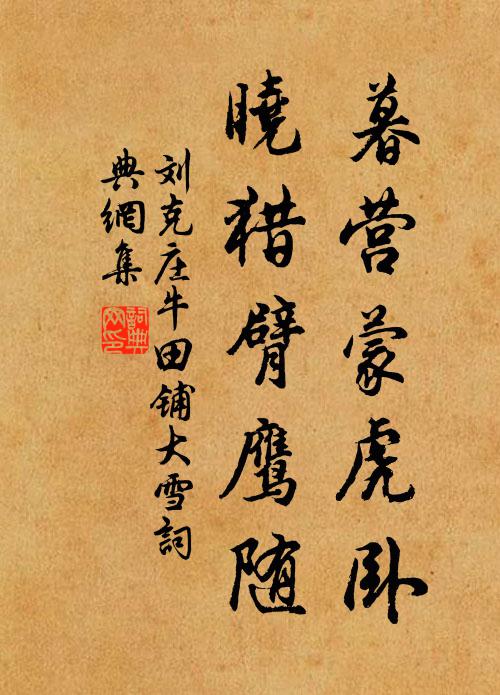 暮营蒙虎卧
曉猎臂鹰随
刘克庄牛田铺大雪詞
典網集
詞典网印